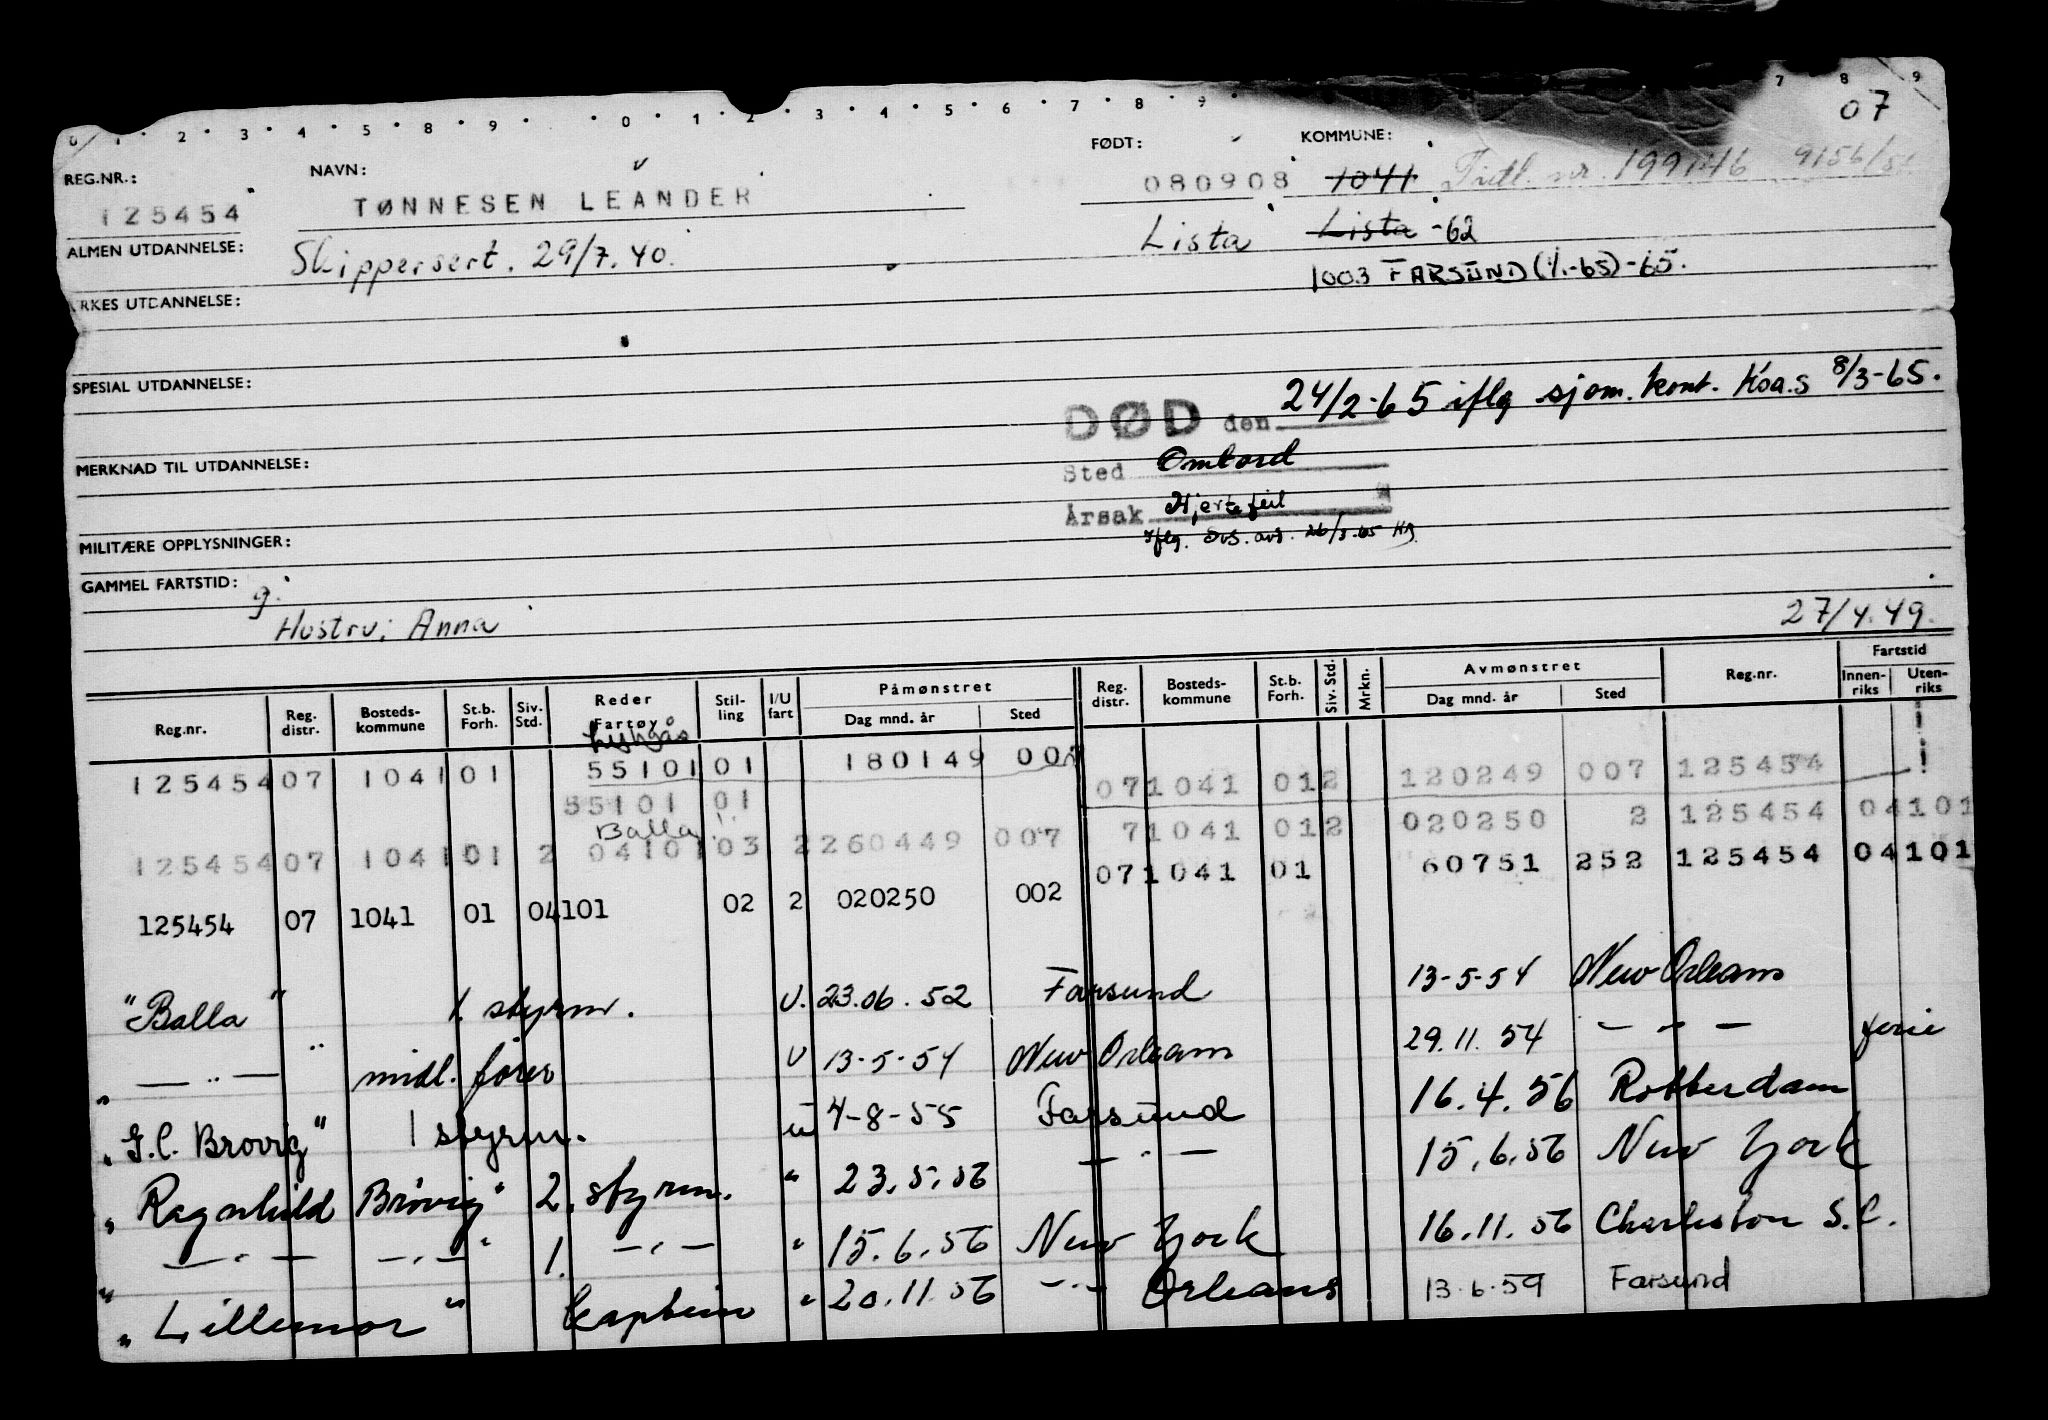 0 1 2 3 4 5 8 9 0 1 2 3 4 5 6 7 8 9 7 8 9
07
REG.NR.: NAVN: FØDT: KOMMUNE:
125454 TØNNESEN LEANDER 080908 1041 Tidl. nr. 199146 9156/
ALMEN UTDANNELSE: Skippersert. 29/7.40. Lista Lista -62
1003 FARSUND (1/1-65)-65.
RKES UTDANNELSE:
SPESIAL UTDANNELSE:
DØD den 24/2-65 iflg sjøm.kont. Koa.s 8/3-65.
MERKNAD TIL UTDANNELSE:
Sted Ombord
Årsak Hjertefeil
MILITÆRE OPPLYSNINGER:
Iflg. avs. 26/3.65 HA
GAMMEL FARTSTID:
g.
Hustru: Anna 27/4.49.
Reg.nr. Reg. distr. Bosteds-kommune St.b. Forh. Siv. Std. Reder Fartøy Stil-ling I/U fart Påmønstret Dag mnd. år Sted Reg. distr. Bosteds-kommune St.b. Forh. Siv. Std. Mrkn. Avmønstret Dag mnd. år Sted Reg.nr. Fartstid Innen-riks Uten-riks
125454 07 1041 01 55101 01 180149 007 07 1041 01 2 120249 007 125454
55101 01
Balla
7 1041 01 2 020250 2 125454 04101
125454 07 1041 01 2 04101 03 2 260449 007
07 1041 01 60751 252 125454 04101
125454 07 1041 01 04101 02 2 020250 002
"Balla" 1. styrm. U. 23.06.52 Farsund 13-5-54 New Orleans
— " — " midl. fører U 13-5-54 New Orleans 29.11.54 — " — ferie
"G.C. Brovig" 1 styrm. u 4-8-55 Farsund 16.4.56 Rotterdam
"Ragnhild Brövig" 2. styrm. " 23.5.56 — " — 15.6.56 New York
" — " — — " — " 1. — " — " 15.6.56 New York 16.11.56 Charleston S.C.
"Lillemor" Captein " 20.11.56 — " — Orleans 13.6.59 Farsund